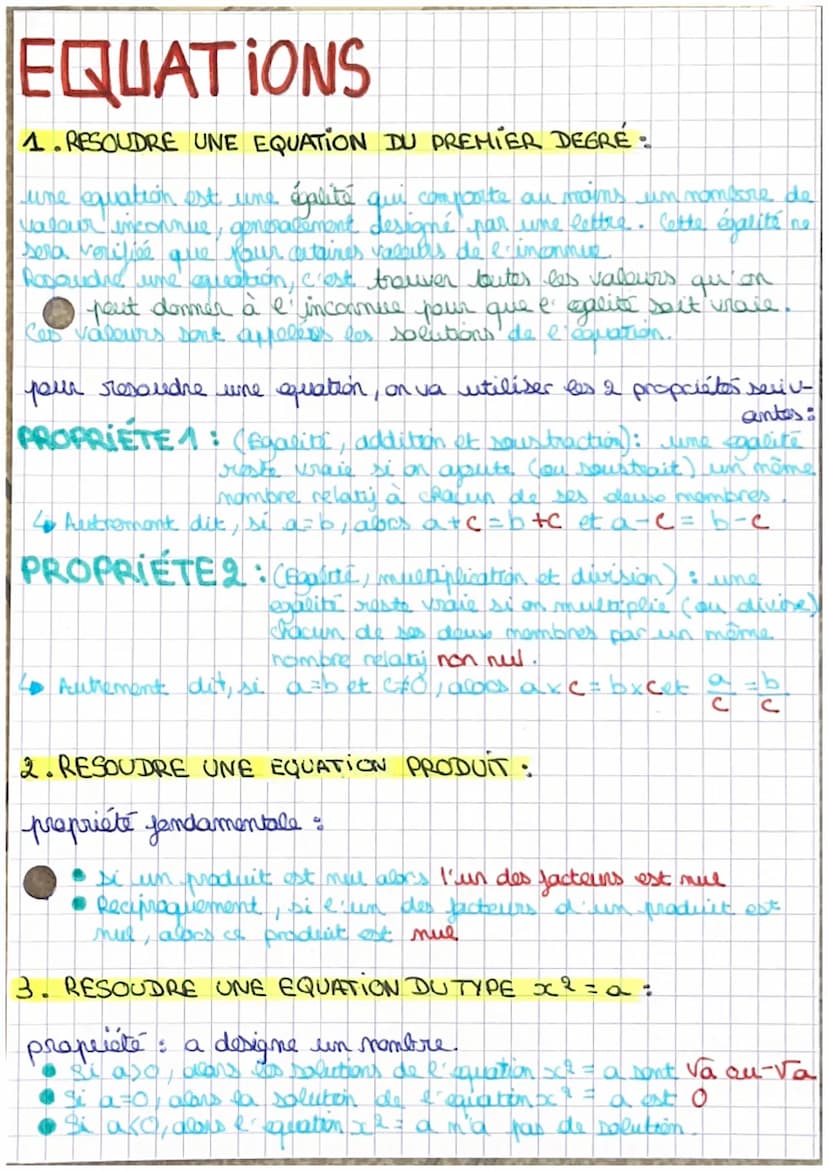 EQUATIONS
1. RESOUDRE UNE EQUATION DU PREMIER DEGRÉ :
une equation est une égalité qui comporte au moins un nombre de
valeur inconnue, generalement designé par une lettre. Cette égalité ne
sera verifiée que pour certaines valeurs de l'inconnue
Resoudre une equation, c'est trouver toutes les valeurs qu'on
peut donner à l'inconnue pour que l'egalité soit vraie.
Ces valeurs sont appelées les solutions de l'équation.
pour resoudre une equation, on va utiliser les 2 propriétés suiv-
antes :
PROPRIÉTE 1 : (Egalité, addition et soustraction) : une egalité
reste vraie si on ajoute (ou soustrait) un même
nombre relatif à chacun de ses deux membres.
↳ Autrement dit, si a=b, alors a+c=b+c et a-c= b-c
PROPRIÉTE 2 : (Egalité, multiplication et division) : une
egalité reste vraie si on multiplie (ou divise)
chacun de ses deux membres par un même
nombre relatif non nul.
↳ Autrement dit, si a=b et c≠0, alors a×c=b×c et a/c = b/c
2. RESOUDRE UNE EQUATION PRODUIT :
propriété fondamentale :
• Si un produit est nul alors l'un des facteurs est nul
• Reciproquement, si l'un des facteurs d'un produit est
nul, alors ce produit est nul
3. RESOUDRE UNE EQUATION DU TYPE x² = a :
propriété : a designe un nombre.
• Si a>0, alors les solutions de l'equation x² = a sont √a ou -√a
• Si a=0, alors la solution de l'equation x² = a est 0
• Si a<0, alors l'equation x² = a n'a pas de solution.